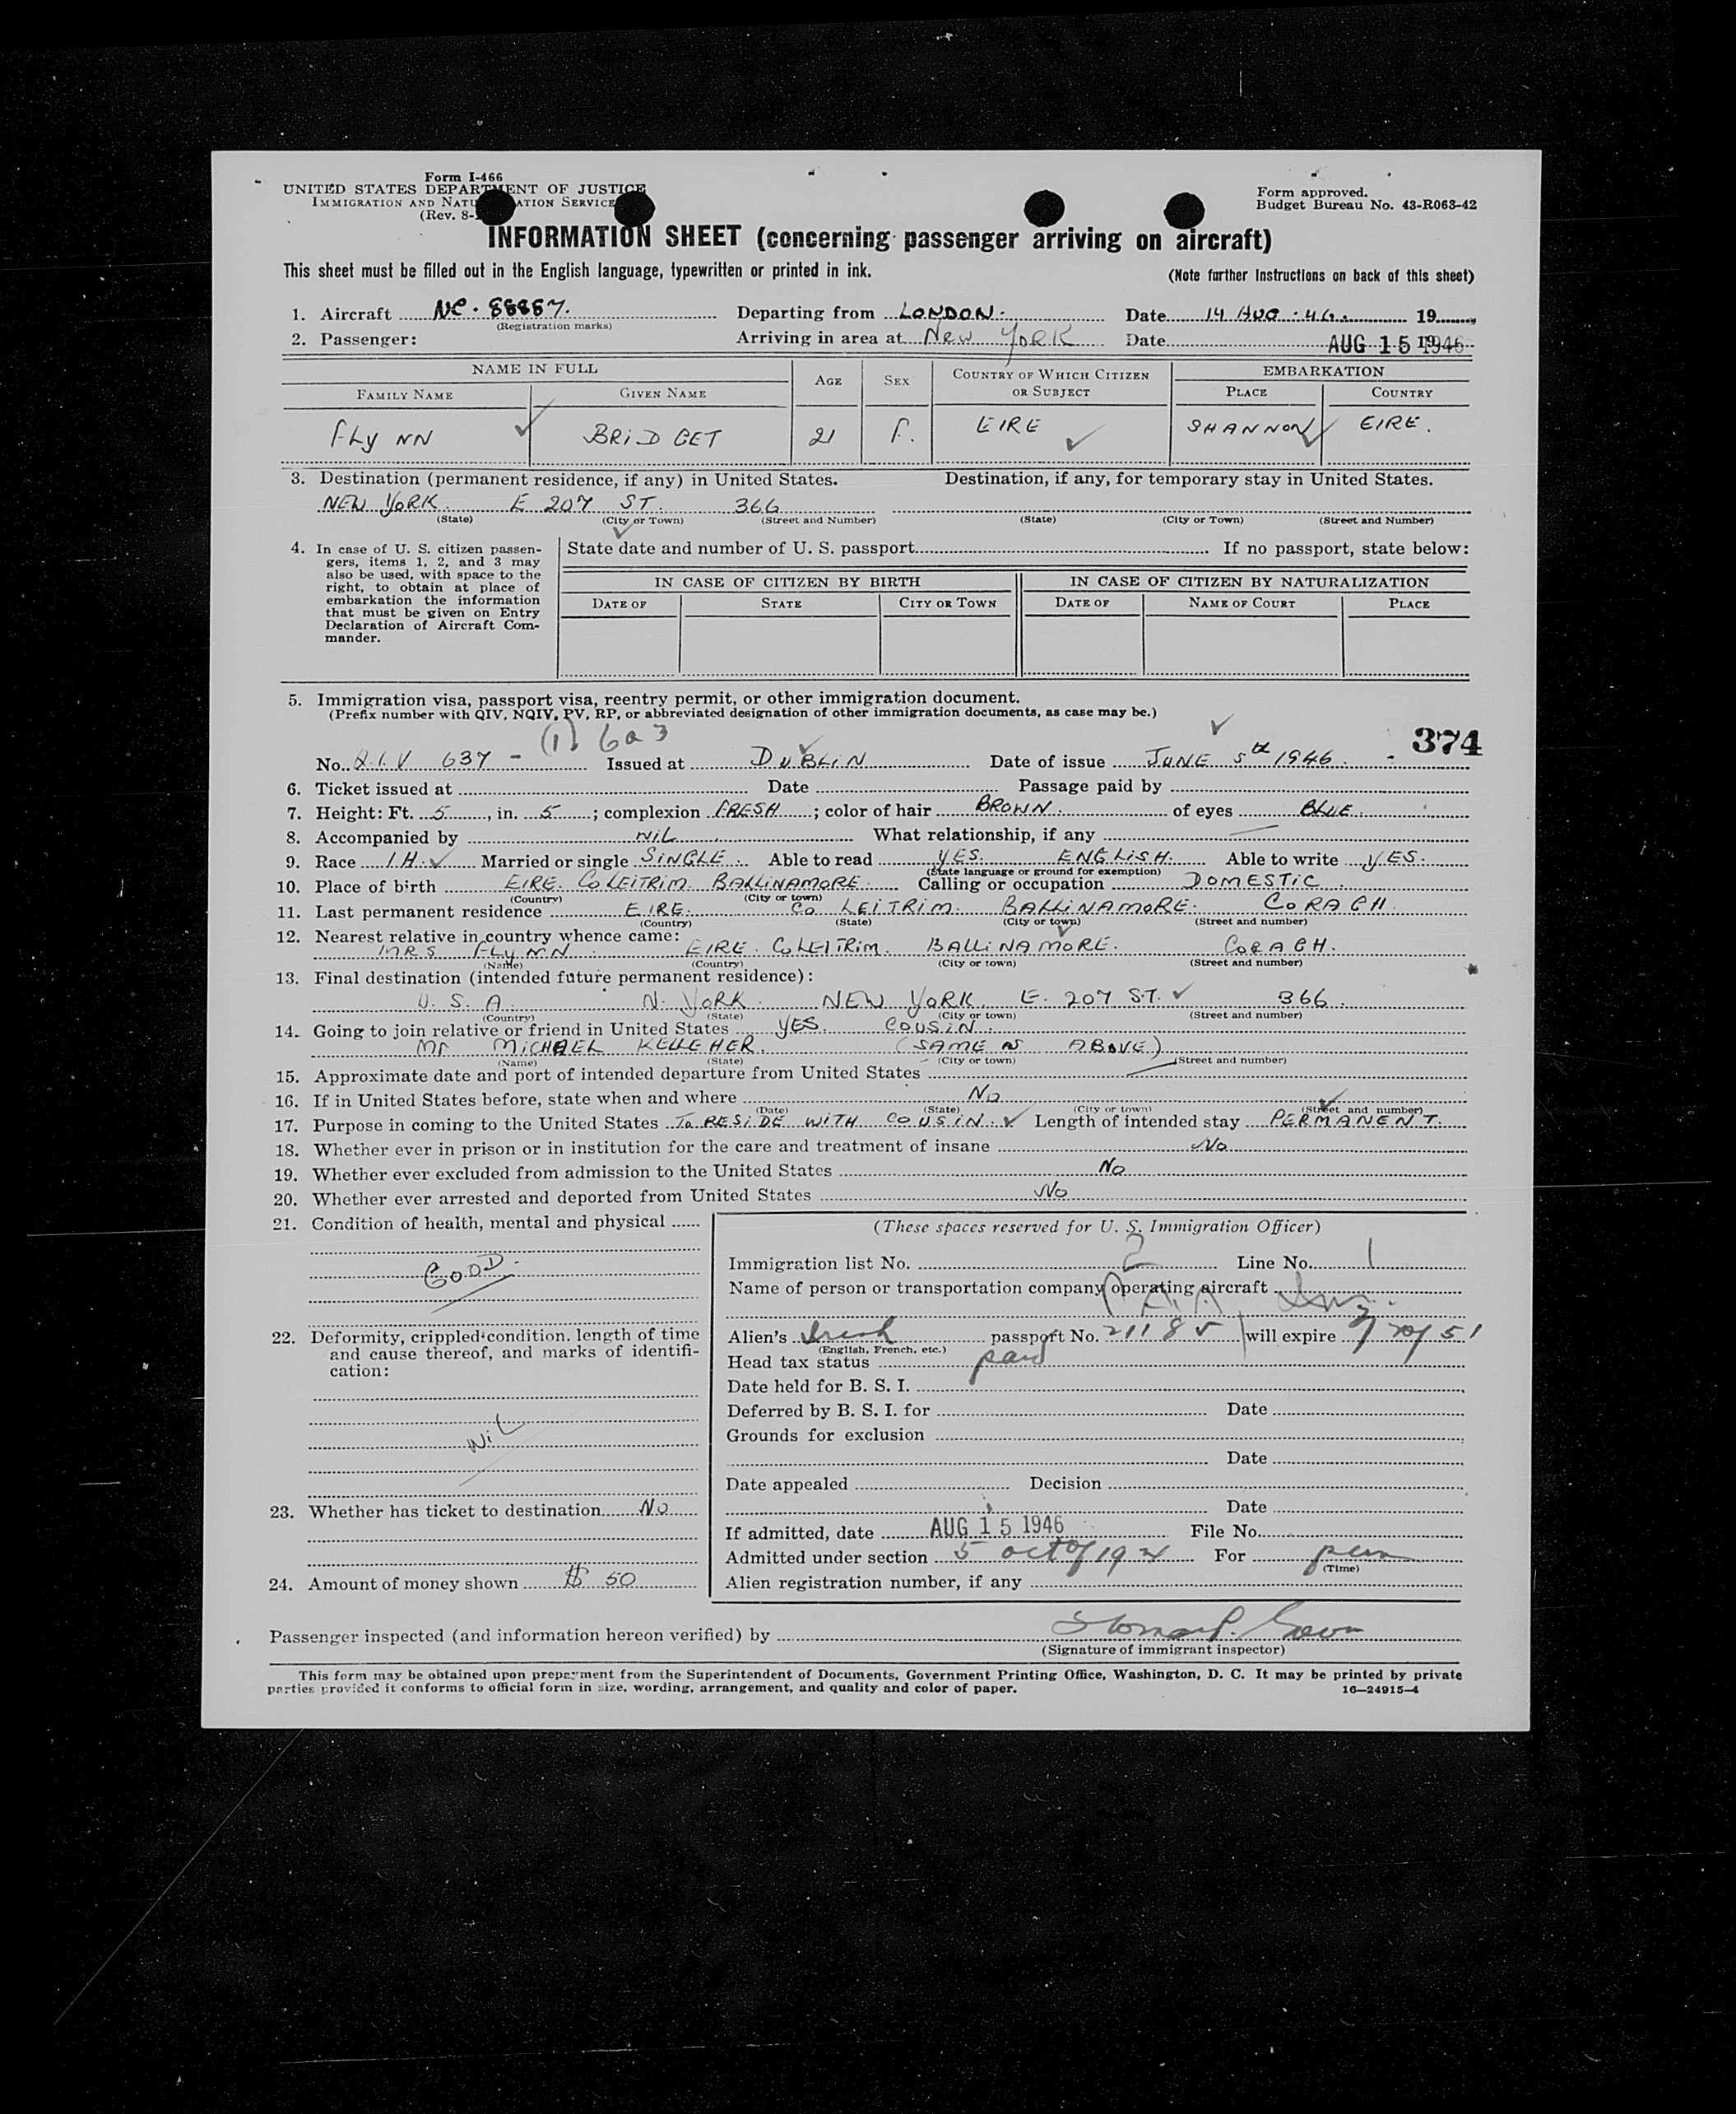 Form I-466
UNITED STATES DEPARTMENT OF JUSTICE
IMMIGRATION AND NATU ATION SERVICE
(Rev. 8-
Form approved.
Budget Bureau No. 43-R063-42
INFORMATION SHEET (concerning passenger arriving on aircraft)
This sheet must be filled out in the English language, typewritten or printed in ink.
(Note further instructions on back of this sheet)
1. Aircraft NC. 88887. Departing from LONDON. Date 14 AUG. 46. 19
(Registration marks)
2. Passenger: Arriving in area at New YORK Date AUG 15 1946
NAME IN FULL AGE SEX COUNTRY OF WHICH CITIZEN OR SUBJECT EMBARKATION
FAMILY NAME GIVEN NAME PLACE COUNTRY
FLYNN BRIDGET 21 F. EIRE SHANNON EIRE.
3. Destination (permanent residence, if any) in United States. Destination, if any, for temporary stay in United States.
NEW YORK. E 207 ST. 366
(State) (City or Town) (Street and Number) (State) (City or Town) (Street and Number)
4. In case of U. S. citizen passen-
gers, items 1, 2, and 3 may
also be used, with space to the
right, to obtain at place of
embarkation the information
that must be given on Entry
Declaration of Aircraft Com-
mander.
State date and number of U. S. passport If no passport, state below:
IN CASE OF CITIZEN BY BIRTH IN CASE OF CITIZEN BY NATURALIZATION
DATE OF STATE CITY OR TOWN DATE OF NAME OF COURT PLACE
5. Immigration visa, passport visa, reentry permit, or other immigration document.
(Prefix number with QIV, NQIV, PV, RP, or abbreviated designation of other immigration documents, as case may be.)
(1) 6a3
374
No. Q.I.V 637 - Issued at DUBLIN Date of issue JUNE 5th 1946.
6. Ticket issued at Date Passage paid by
7. Height: Ft. 5, in. 5; complexion FRESH; color of hair BROWN. of eyes BLUE.
8. Accompanied by NIL What relationship, if any
9. Race I.H. Married or single SINGLE. Able to read YES. ENGLISH. Able to write YES.
(State language or ground for exemption)
10. Place of birth EIRE. Co LEITRIM. BALLINAMORE. Calling or occupation DOMESTIC.
(Country) (City or town)
11. Last permanent residence EIRE. Co LEITRIM. BALLINAMORE. CORAGH.
(Country) (State) (City or town) (Street and number)
12. Nearest relative in country whence came:
MRS FLYNN. EIRE. Co LEITRIM. BALLINAMORE. CORAGH.
(Name) (Country) (City or town) (Street and number)
13. Final destination (intended future permanent residence):
U.S.A. N. YORK. NEW YORK. E. 207 ST. 366.
(Country) (State) (City or town) (Street and number)
14. Going to join relative or friend in United States YES. COUSIN.
Mr MICHAEL KELLEHER. (SAME AS ABOVE)
(Name) (State) (City or town) (Street and number)
15. Approximate date and port of intended departure from United States
16. If in United States before, state when and where No
(Date) (State) (City or town) (Street and number)
17. Purpose in coming to the United States To RESIDE WITH COUSIN. Length of intended stay PERMANENT.
18. Whether ever in prison or in institution for the care and treatment of insane No
19. Whether ever excluded from admission to the United States No
20. Whether ever arrested and deported from United States No
21. Condition of health, mental and physical
GOOD.
22. Deformity, crippled condition. length of time
and cause thereof, and marks of identifi-
cation:
NIL
23. Whether has ticket to destination No
24. Amount of money shown $ 50
(These spaces reserved for U. S. Immigration Officer)
Immigration list No. 2 Line No. 1
Name of person or transportation company operating aircraft
Alien's Irish passport No. 21185 will expire
(English, French, etc.)
Head tax status paid
Date held for B. S. I.
Deferred by B. S. I. for Date
Grounds for exclusion
Date
Date appealed Decision
Date
If admitted, date AUG 15 1946 File No.
Admitted under section 5 oct of 1924 For perm
(Time)
Alien registration number, if any
Passenger inspected (and information hereon verified) by
(Signature of immigrant inspector)
This form may be obtained upon prepayment from the Superintendent of Documents, Government Printing Office, Washington, D. C. It may be printed by private
parties provided it conforms to official form in size, wording, arrangement, and quality and color of paper. 16—24915-4